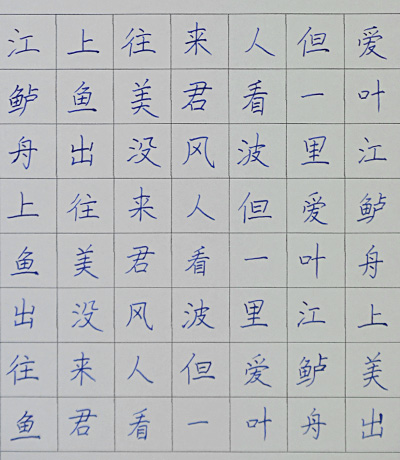 江上往来人但爱
鲈鱼美君看一叶
舟出没风波里江
上往来人但爱鲈
鱼美君看一叶舟
出没风波里江上
往来人但爱鲈美
鱼君看一叶舟出